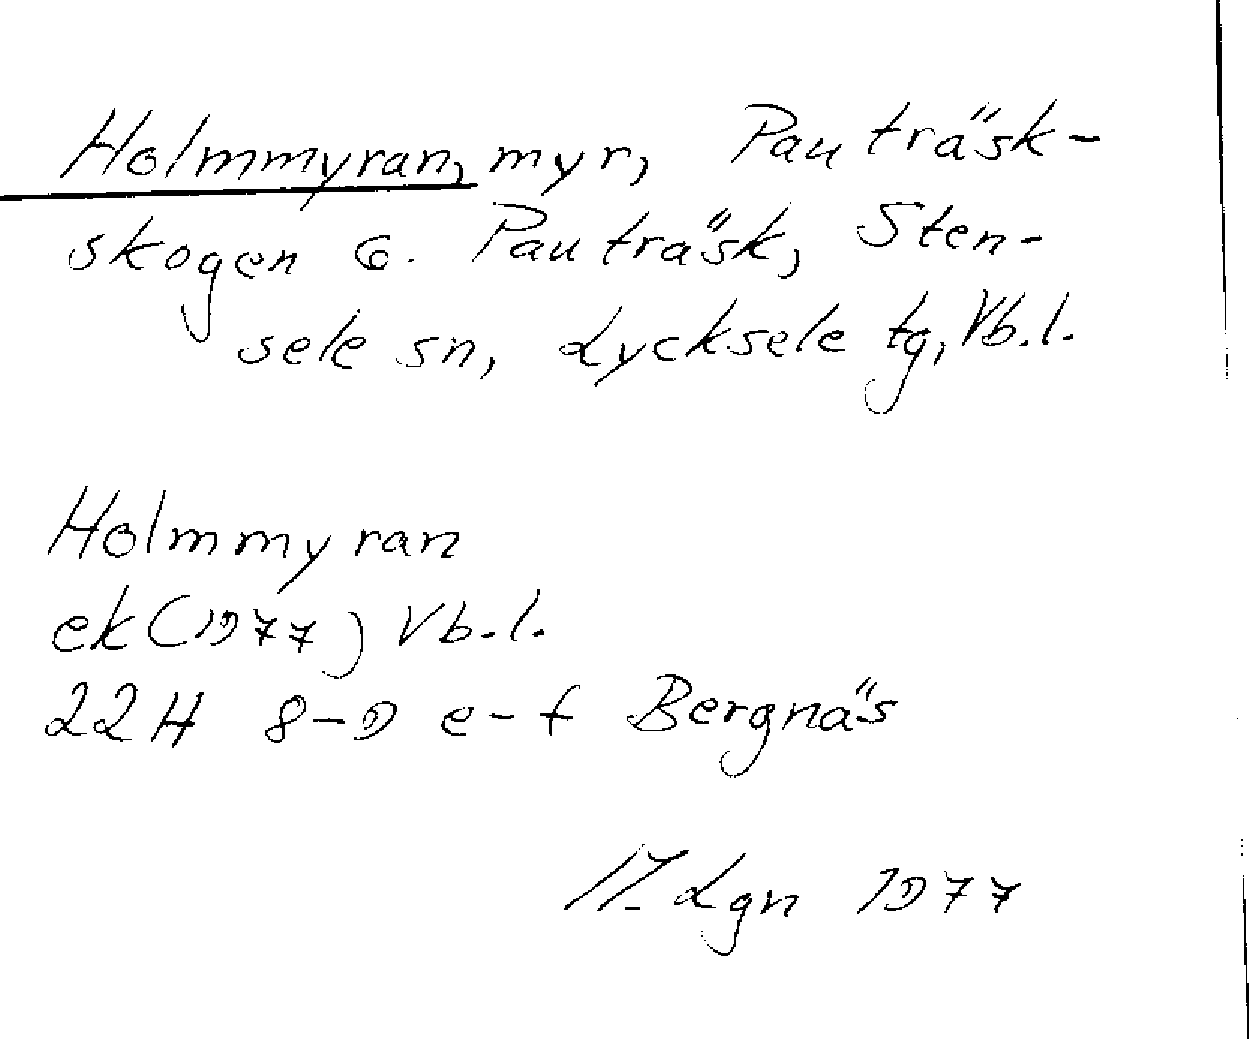 Holmmyran, myr, Pauträsk-
skogen G. Pauträsk, Sten-
sele sn, Lycksele tg, Vb.l.
Holmmyran
ek (1977) Vb.l.
22H 8-9 e-f Bergnäs
Lgn 1977